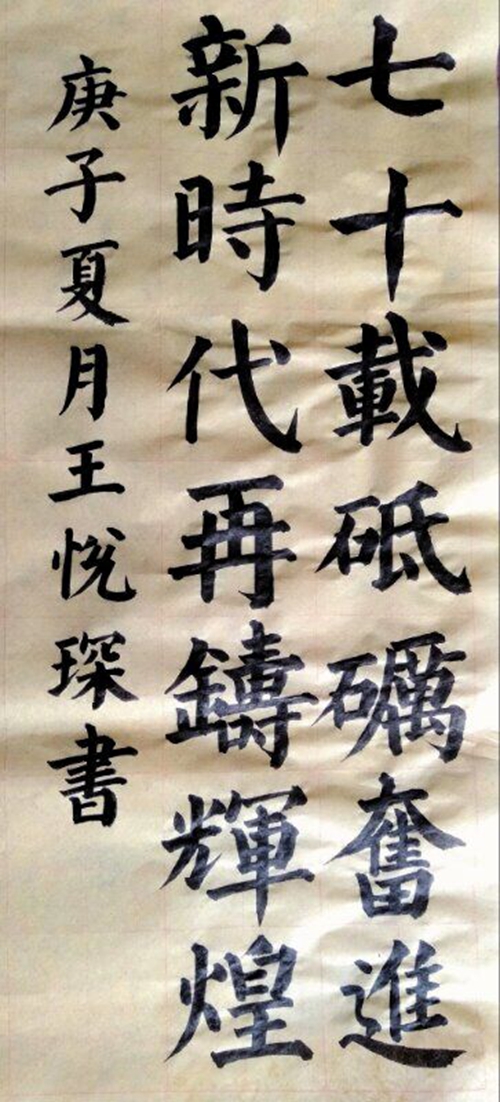 七十載砥礪奮進
新時代再鑄輝煌
庚子夏月王悦琛書